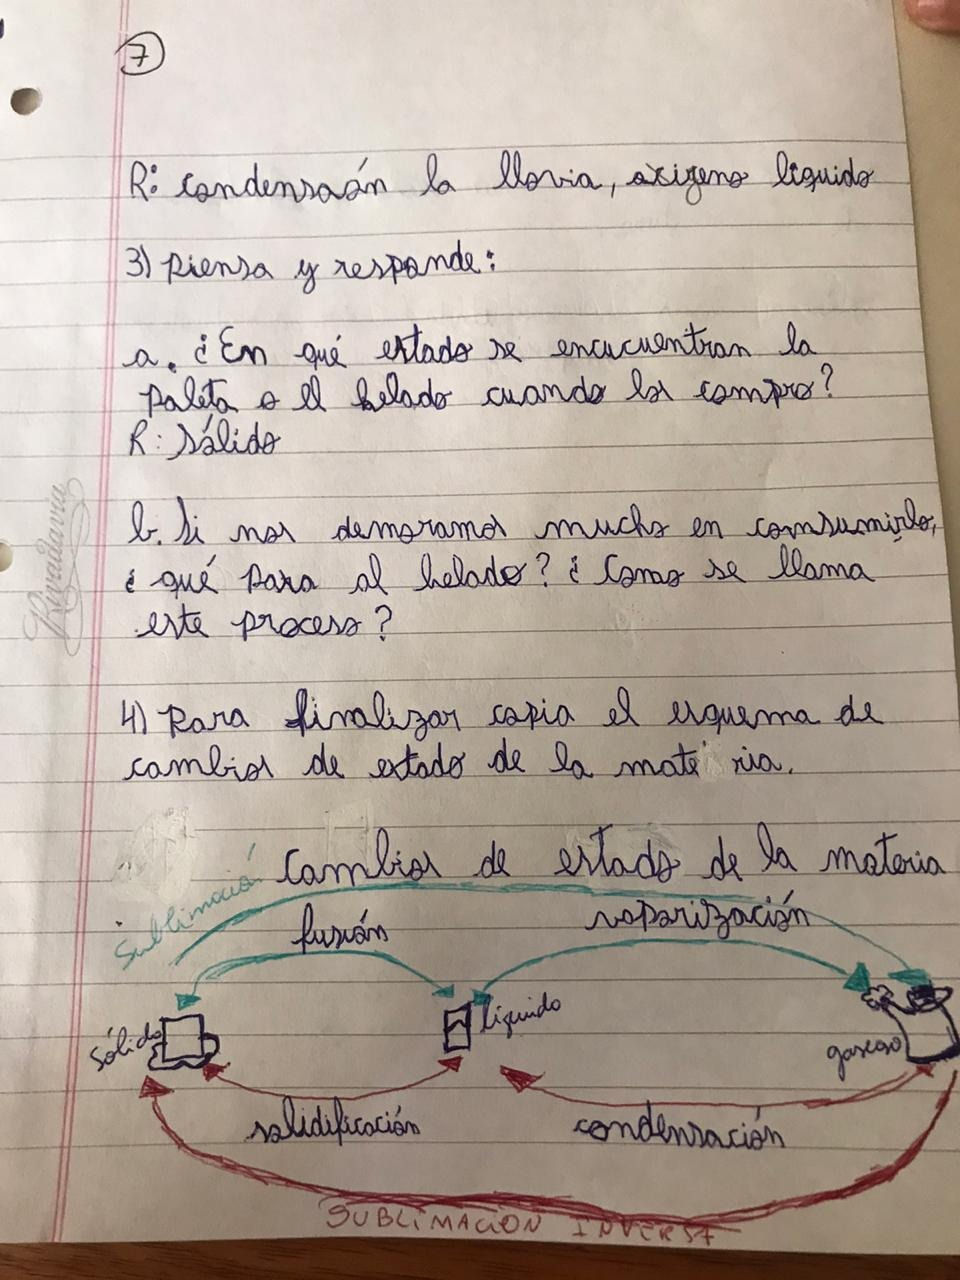 7
R: condensación la llovia, oxigeno liquido
3) Piensa y responde:
a. ¿En qué estado se encucuentran la
paleta o el helado cuando los compro?
R: Sólido
b. Si nos demoramos mucho en consumirlo,
¿qué pasa al helado? ¿Como se llama
este proceso?
4) Para finalizar copia el esquema de
cambios de estado de la mate ria.
Cambios de estado de la materia
Sublimación
fusión
vaporización
sólido
liquido
gaseoso
solidificación
condensación
SUBLIMACIÓN INVERSA
Rivadavia